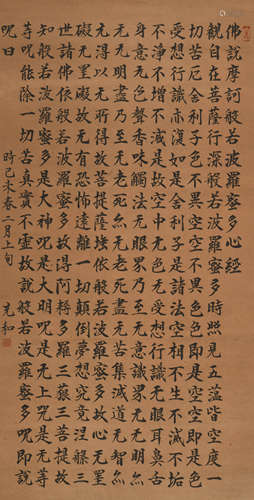 佛說摩訶般若波羅蜜多心經
觀自在菩薩行深般若波羅蜜多時照見五蘊皆空度一
切苦厄舍利子色不異空空不異色色即是空空即是色
受想行識亦復如是舍利子是諸法空相不生不滅不垢
不淨不增不減是故空中无色无受想行識无眼耳鼻舌
身意无色聲香味觸法无眼界乃至无意識界无无明亦
无无明盡乃至无老死亦无老死盡无苦集滅道无智亦
无得以无所得故菩提薩埵依般若波羅蜜多故心无罣
礙无罣礙故无有恐怖遠離一切顛倒夢想究竟涅槃三
世諸佛依般若波羅蜜多故得阿耨多羅三藐三菩提故
知般若波羅蜜多是大神呪是大明呪是无上呪是无等
等呪能除一切苦真實不虛故說般若波羅蜜多呪即說
呪曰
時己未春二月上旬
和